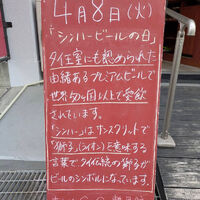 4月8日(火)
「シンハービールの日」
タイ王室にも認められた
由緒あるプレミアムビールで
世界50ヶ国以上で愛飲
されています。
「シンハー」はサンスクリットで
「獅子」(ライオン)を意味する
言葉でタイ伝統の獅子が
ビールのシンボルになっています。